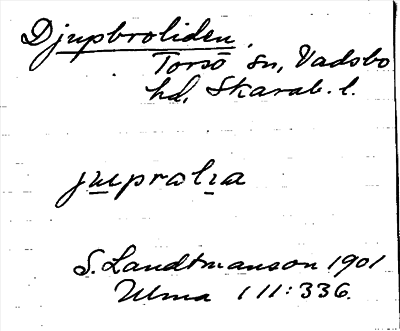 Djupbroliden
Torsö sn, Vadsbo
hd, Skarab. l.
jupralia
S. Landtmanson 1901
Ulma 111:336.